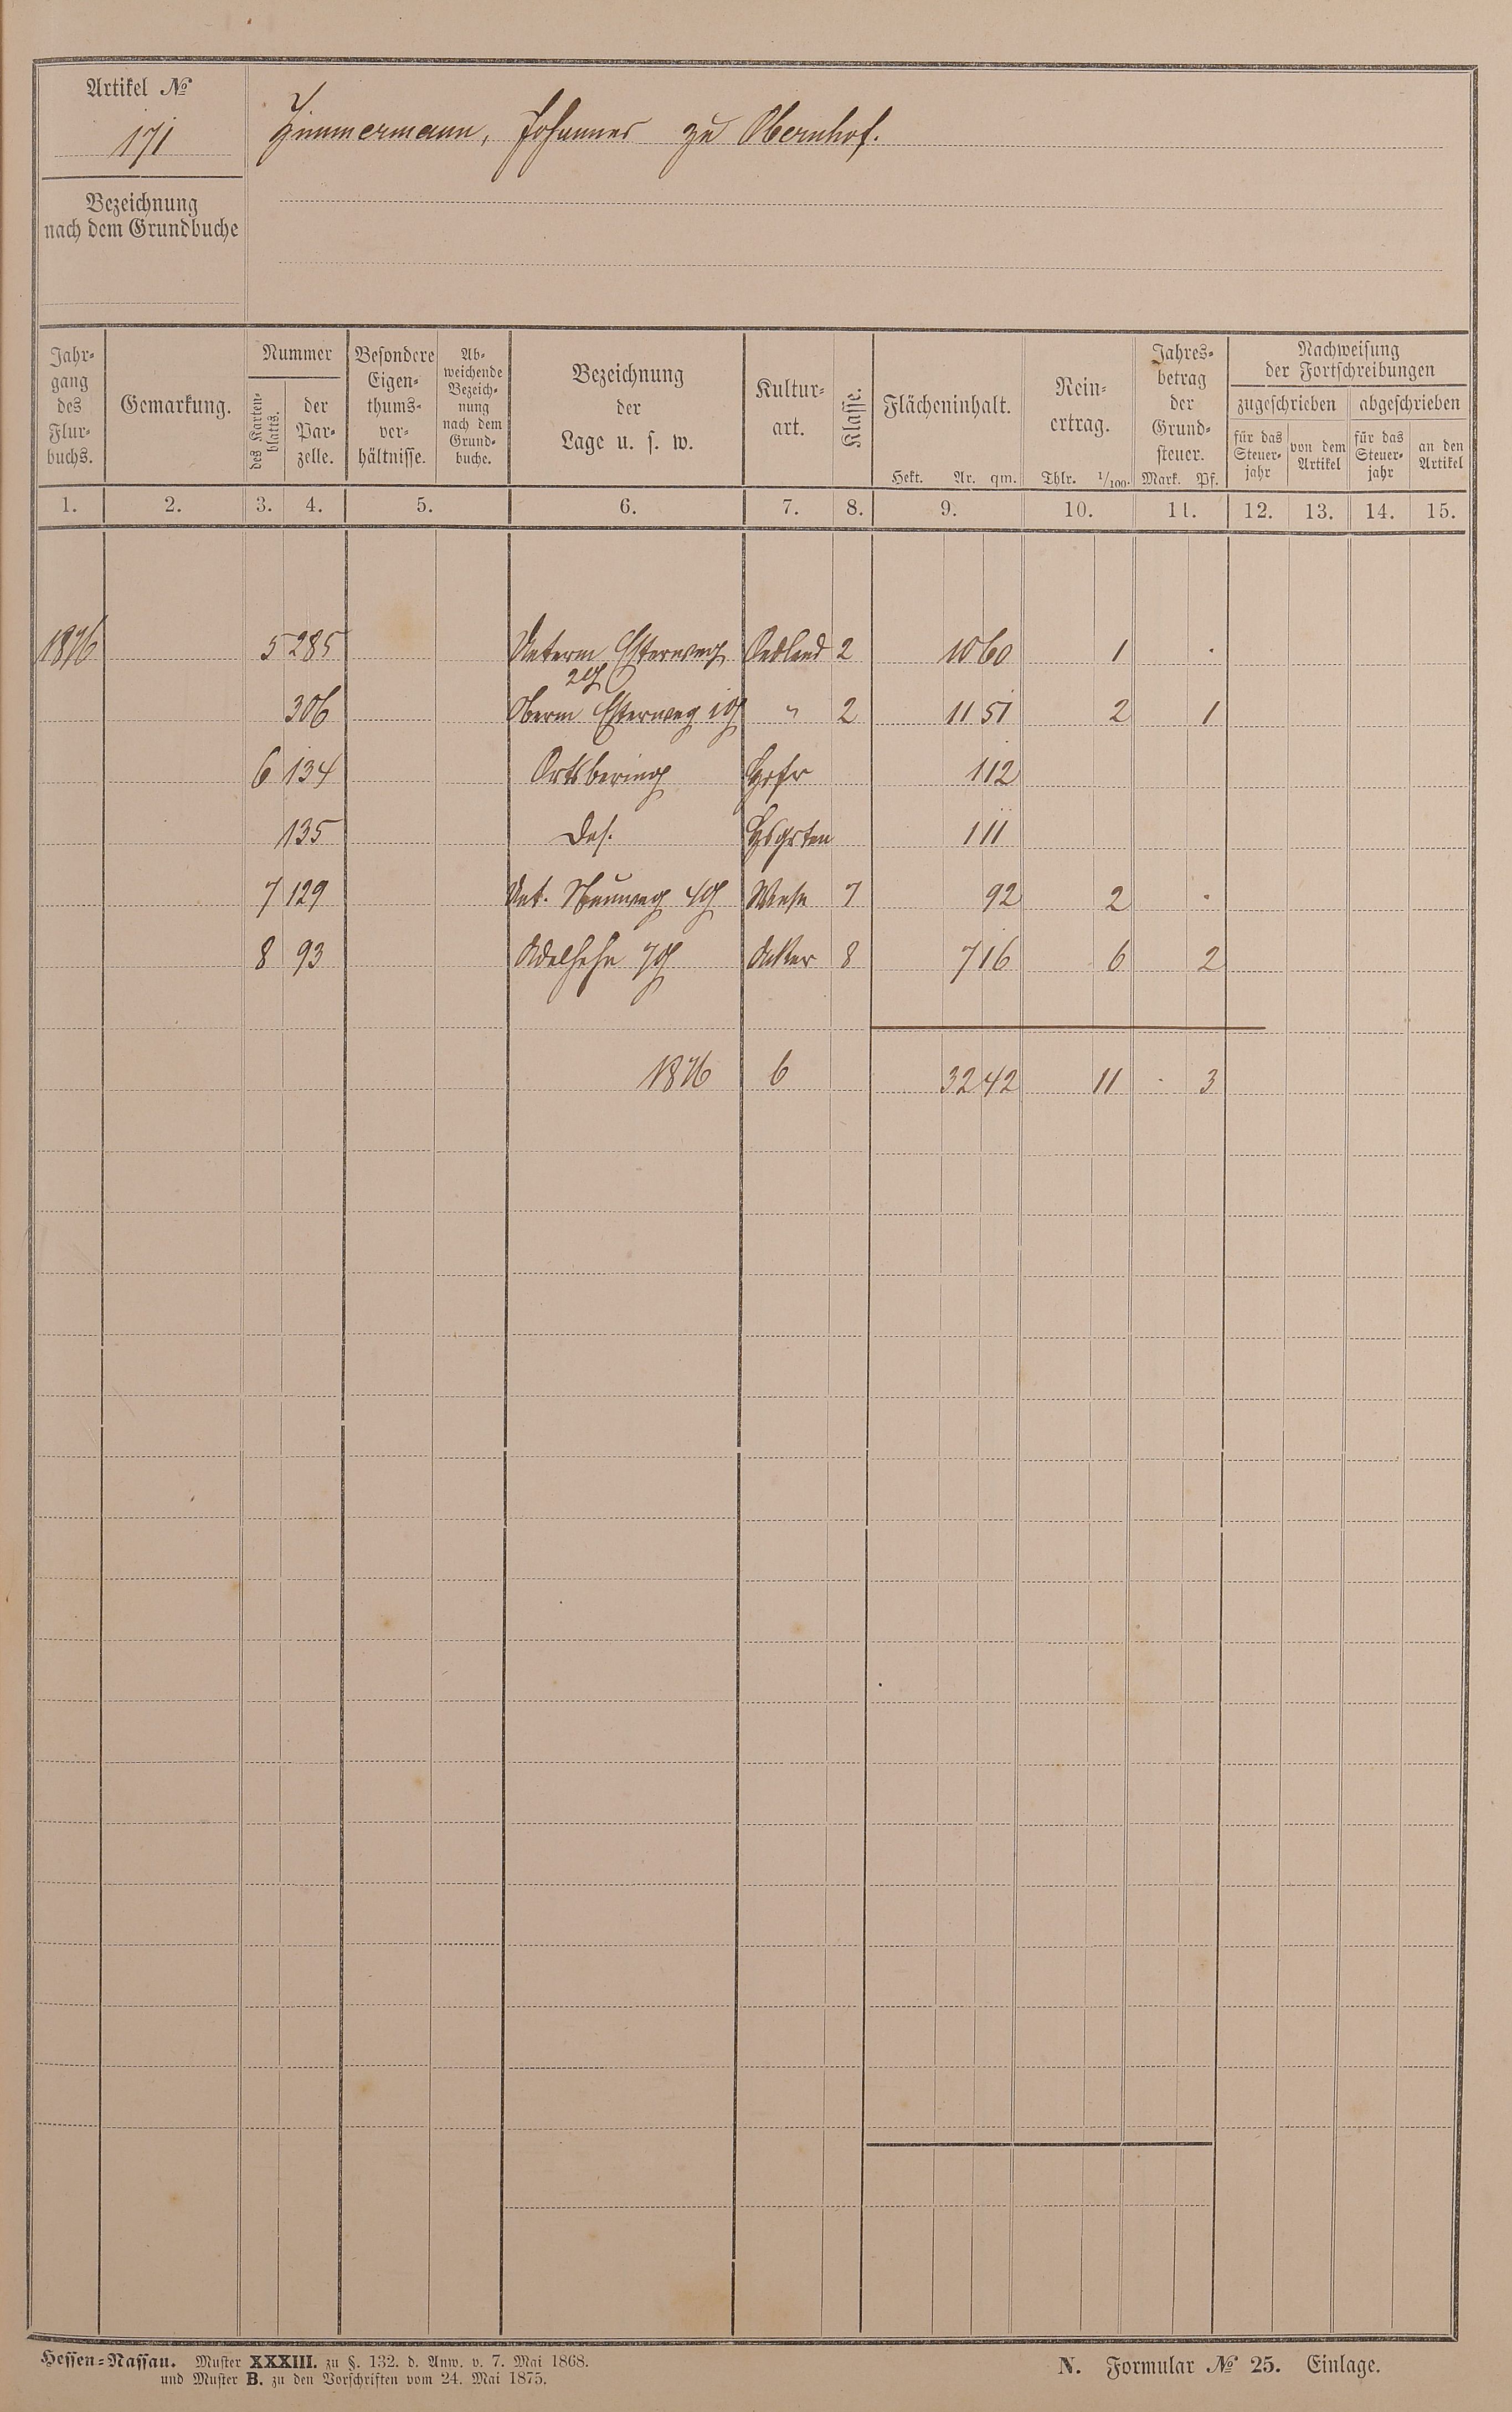 Artikel №
171
Zimmermann, Johannes zu Obernhof.
Bezeichnung
nach dem Grundbuche
Jahr-
gang
des
Flur-
buchs.
Gemarkung.
Nummer
des Karten-
blatts.
der
Par-
zelle.
Besondere
Eigen-
thums-
ver-
hältnisse.
Ab-
weichende
Bezeich-
nung
nach dem
Grund-
buche.
Bezeichnung
der
Lage u. s. w.
Kultur-
art.
Klasse.
Flächeninhalt.
Hekt. Ar. qm.
Rein-
ertrag.
Thlr. 1/100.
Jahres-
betrag
der
Grund-
steuer.
Mark. Pf.
Nachweisung
der Fortschreibungen
zugeschrieben abgeschrieben
für das
Steuer-
jahr
von dem
Artikel
für das
Steuer-
jahr
an den
Artikel
1. 2. 3. 4. 5. 6. 7. 8. 9. 10. 11. 12. 13. 14. 15.
1876 5 285 Unterm Esterweg Oedland 2 10 60 1 .
2g
306 Oberm Esterweg 1g " 2 11 51 2 1
6 134 Ortsbering Hofr 1 12
135 Das. Hsgrten 1 11
7 129 Unt. 4g Wiese 7 92 2 .
8 93 7g Acker 8 7 16 6 2
1876 6 32 42 11 . 3
Hessen-Nassau. Muster XXXIII. zu §. 132. d. Anw. v. 7. Mai 1868.
und Muster B. zu den Vorschriften vom 24. Mai 1875.
N. Formular № 25. Einlage.